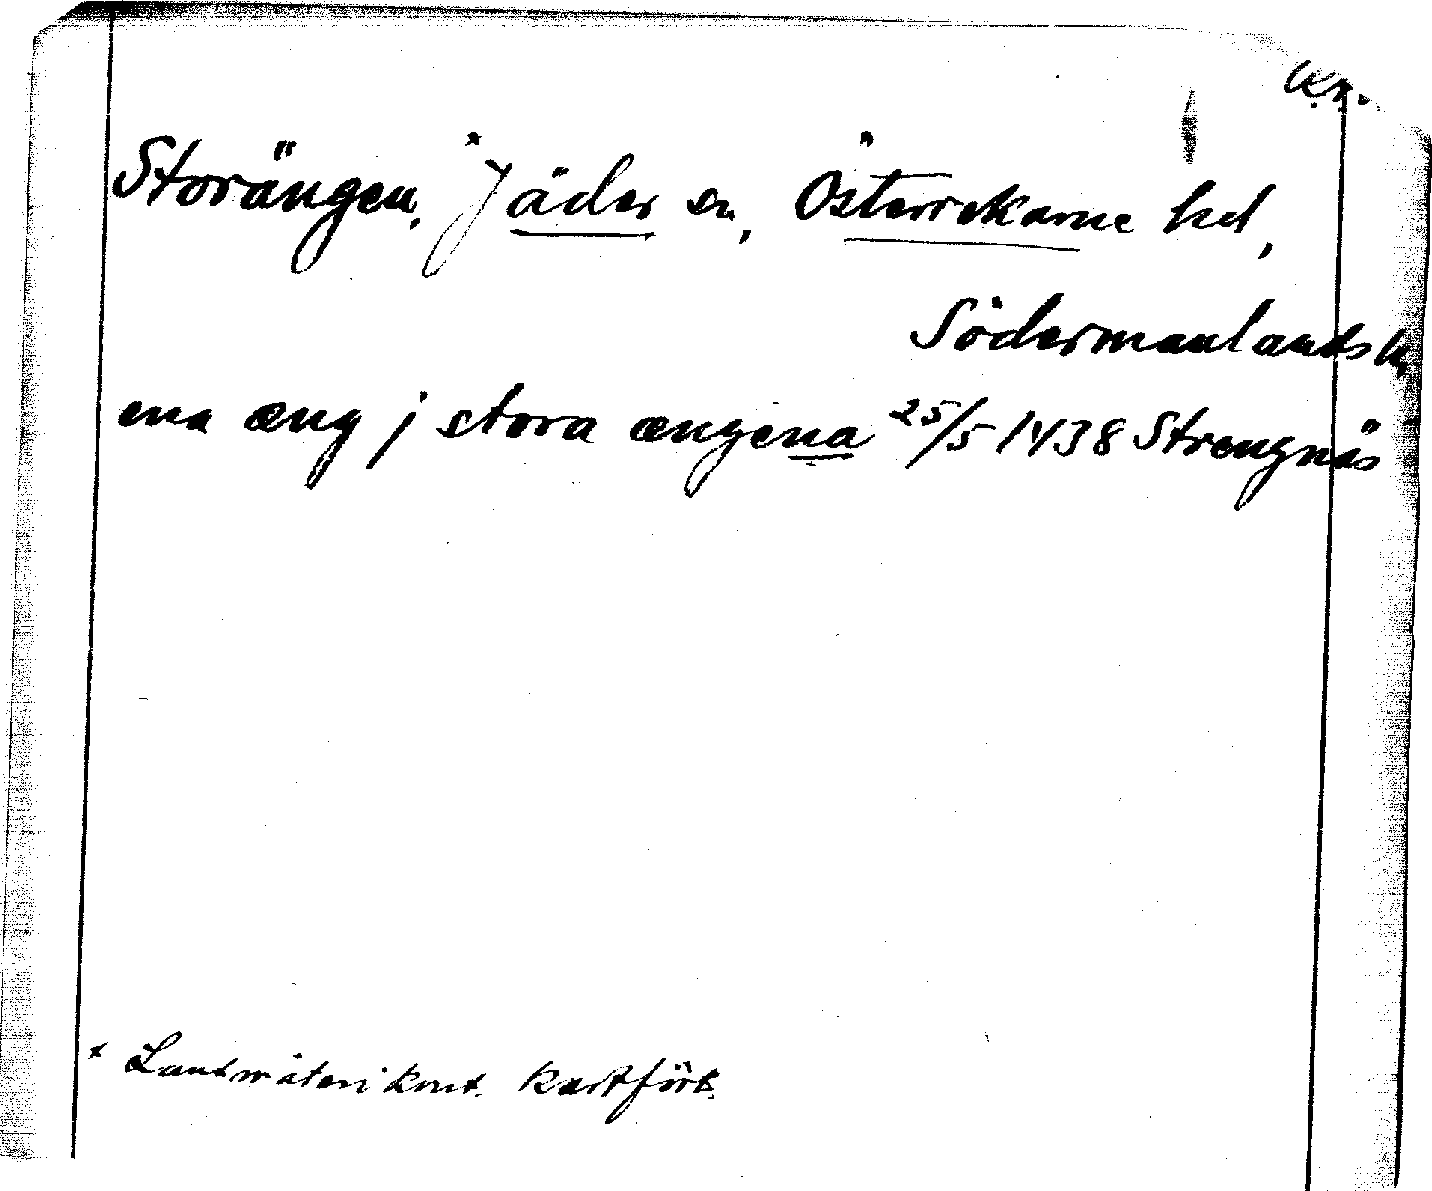 Kr.
Storängen,* Jäder sn, Österrekarne hd,
Södermanlands l.
ena æng j stora ængena 25/5 1438 Strengnäs
* Lantmäterikont. kartfört.